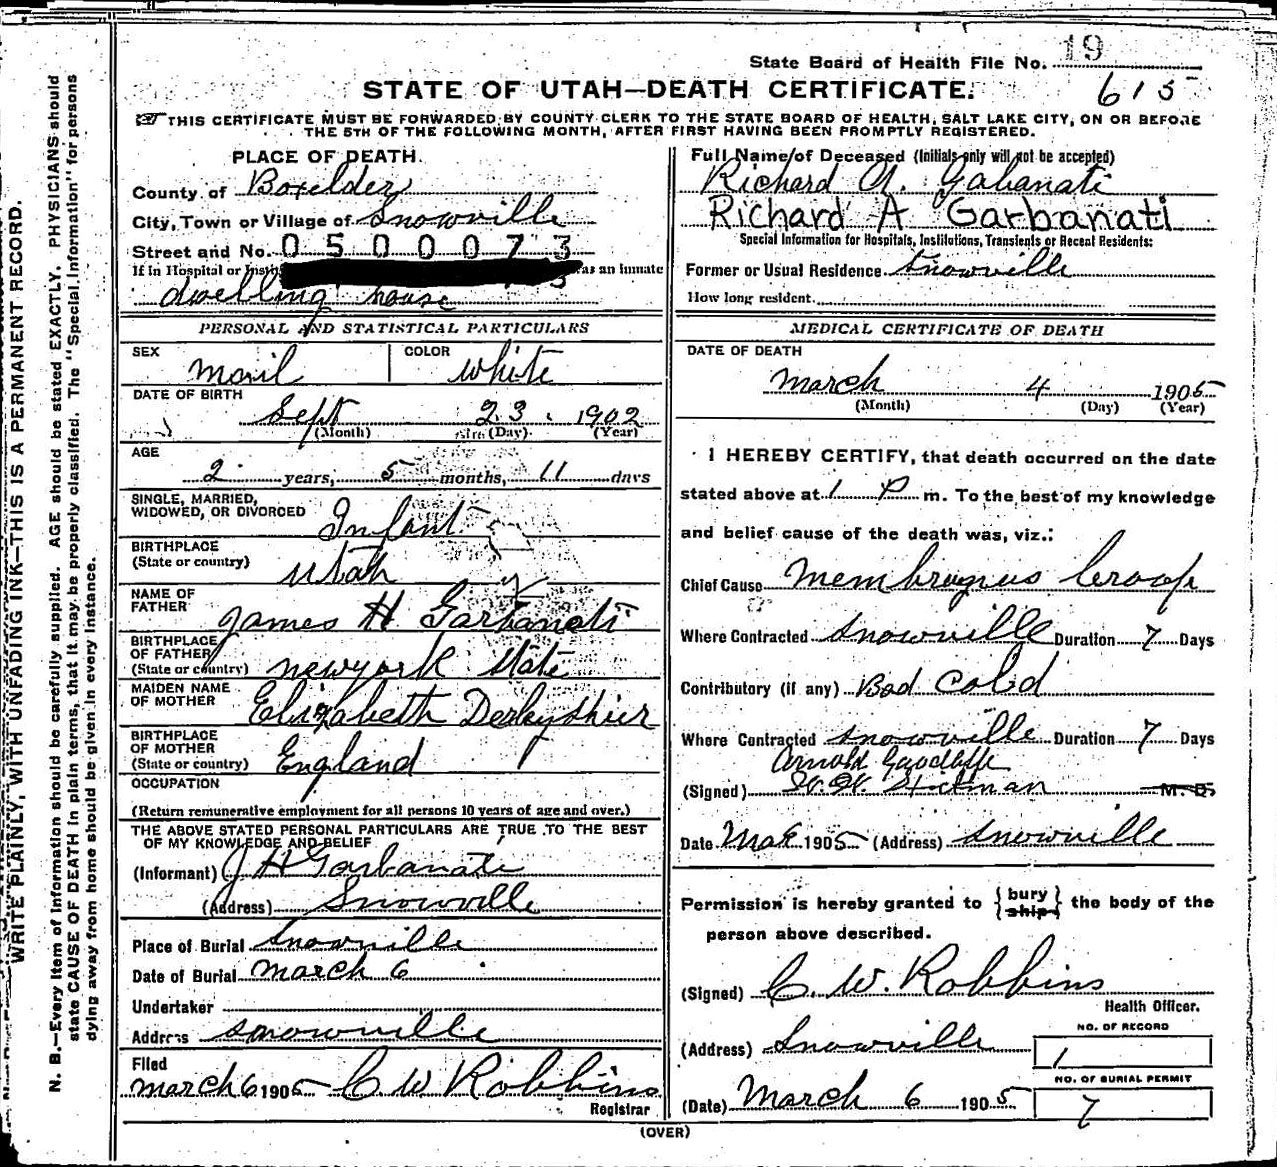 State Board of Health File No. 19
STATE OF UTAH—DEATH CERTIFICATE. 615
THIS CERTIFICATE MUST BE FORWARDED BY COUNTY CLERK TO THE STATE BOARD OF HEALTH, SALT LAKE CITY, ON OR BEFORE
THE 5TH OF THE FOLLOWING MONTH, AFTER FIRST HAVING BEEN PROMPTLY REGISTERED.
WRITE PLAINLY, WITH UNFADING INK—THIS IS A PERMANENT RECORD.
N. B.—Every item of information should be carefully supplied. AGE should be stated EXACTLY. PHYSICIANS should
state CAUSE OF DEATH in plain terms, that it may be properly classified. The "Special Information" for persons
dying away from home should be given in every instance.
PLACE OF DEATH.
County of Boxelder
City, Town or Village of Snowville
Street and No. 0500073
If in Hospital or as an inmate
dwelling house
PERSONAL AND STATISTICAL PARTICULARS
SEX mail COLOR white
DATE OF BIRTH
Sept 23. 1902
(Month) (Day) (Year)
AGE
2 years, 5 months, 11 days
SINGLE, MARRIED,
WIDOWED, OR DIVORCED Infant
BIRTHPLACE
(State or country) Utah
NAME OF
FATHER James H Garbanati
BIRTHPLACE
OF FATHER
(State or country) newyork State
MAIDEN NAME
OF MOTHER Elizabeth Derbyshier
BIRTHPLACE
OF MOTHER
(State or country) England
OCCUPATION
(Return remunerative employment for all persons 10 years of age and over.)
THE ABOVE STATED PERSONAL PARTICULARS ARE TRUE TO THE BEST
OF MY KNOWLEDGE AND BELIEF
(Informant) J H Garbanati
(Address) Snowville
Place of Burial Snowville
Date of Burial March 6
Undertaker
Address Snowville
Filed
March 6 1905 C W Robbins
Registrar
Full Name of Deceased (Initials only will not be accepted)
Richard A. Gabanati
Richard A Garbanati
Special Information for Hospitals, Institutions, Transients or Recent Residents:
Former or Usual Residence Snowville
How long resident
MEDICAL CERTIFICATE OF DEATH
DATE OF DEATH
March 4 1905
(Month) (Day) (Year)
I HEREBY CERTIFY, that death occurred on the date
stated above at 1 P m. To the best of my knowledge
and belief cause of the death was, viz.:
Chief Cause Membragnus Croop
Where Contracted Snowville Duration 7 Days
Contributory (if any) Bad Cold
Where Contracted Snowville Duration 7 Days
Arnold
(Signed) M. D.
Date Mar 1905 (Address) Snowville
Permission is hereby granted to {bury ship} the body of the
person above described.
(Signed) C. W. Robbins
Health Officer.
(Address) Snowville
NO. OF RECORD
1
NO. OF BURIAL PERMIT
7
(Date) March 6 1905
(OVER)